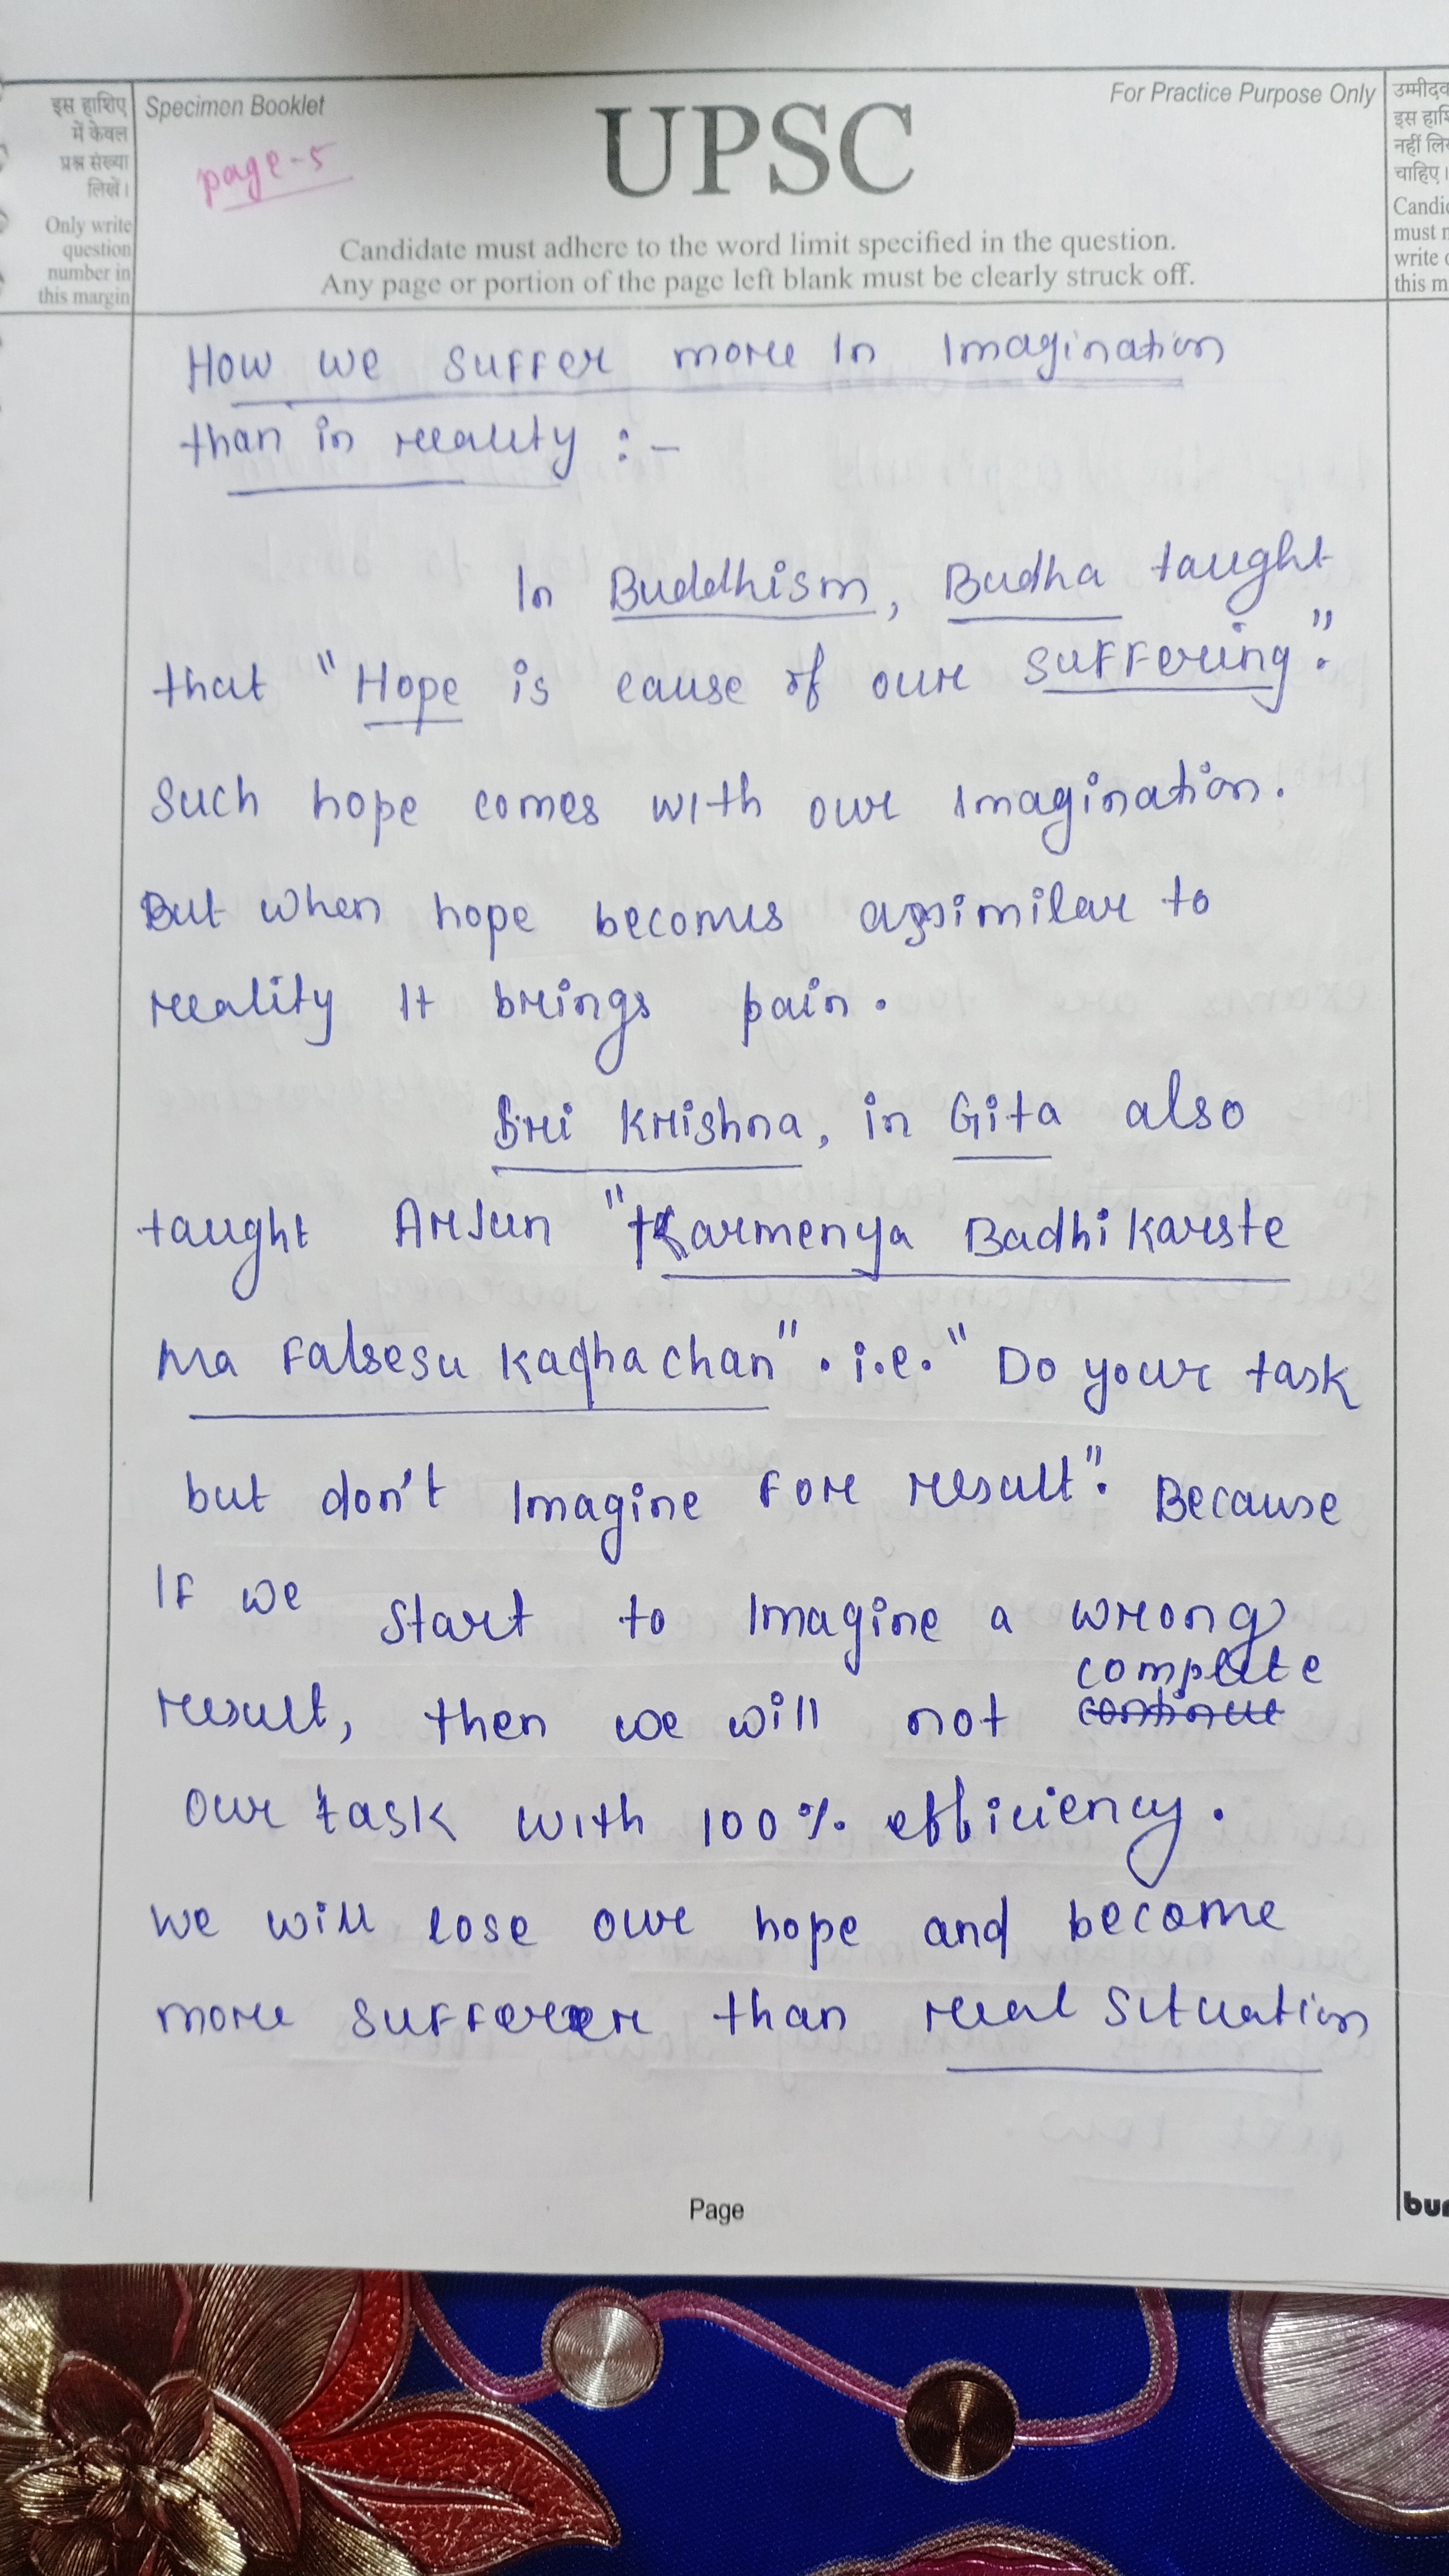 इस हाशिए
में केवल
प्रश्न संख्या
लिखें।
Only write
question
number in
this margin
Specimen Booklet
page-5
UPSC
For Practice Purpose Only
Candidate must adhere to the word limit specified in the question.
Any page or portion of the page left blank must be clearly struck off.
उम्मीदव
इस हाशि
नहीं लि
चाहिए।
Candid
must n
write o
this m
How we suffer more In Imagination
than in reality : -
In Buddhism, Budha taught
that "Hope is cause of our suffering."
Such hope comes with our Imagination.
But when hope becomes assimilar to
reality It brings pain.
Sri Krishna, in Gita also
taught Arjun "Karmenya Badhikarste
Ma Falsesu Kadhachan". i.e. "Do your task
but don't Imagine for result". Because
If we start to Imagine a wrong
result, then we will not continue complete
our task with 100% efficiency.
We will lose our hope and become
more sufferer than real Situation
Page
bur